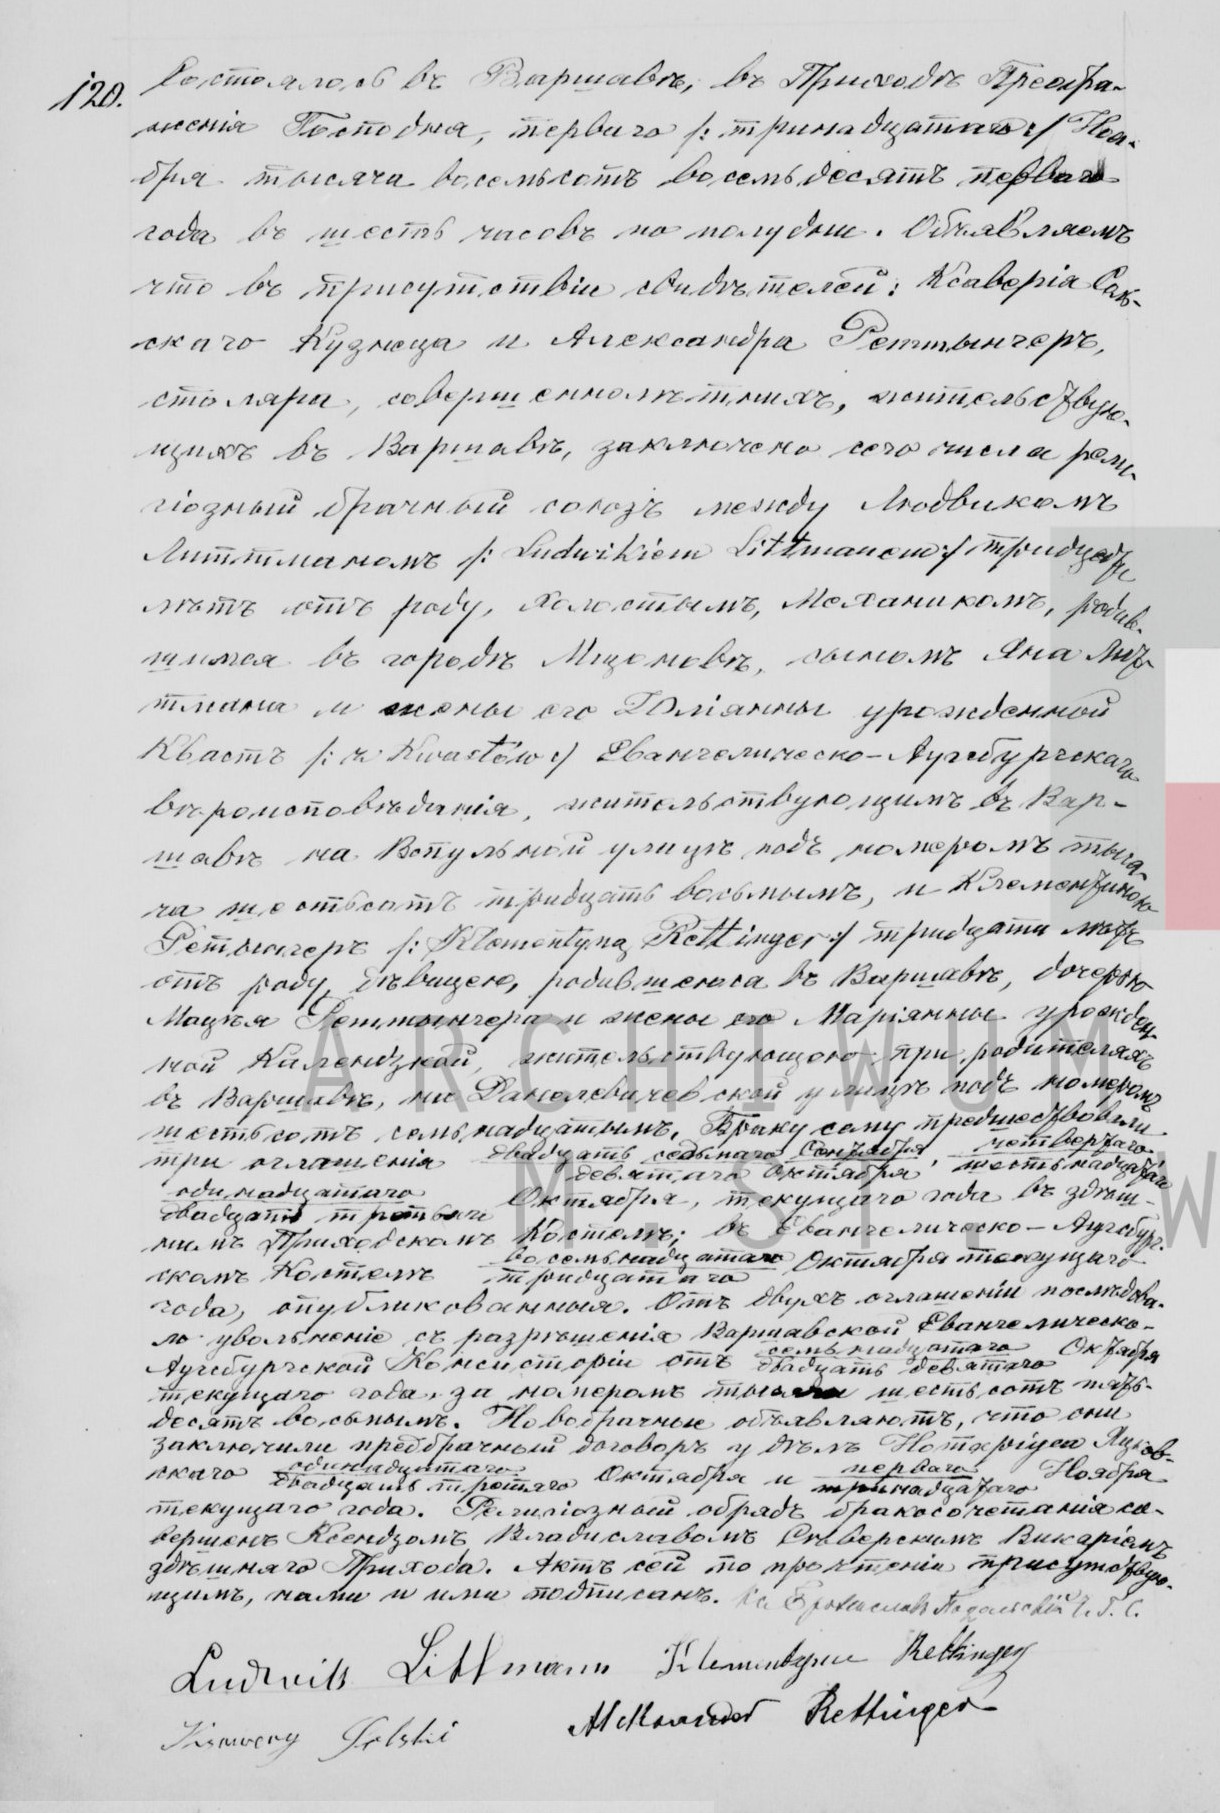 120. Состоялось въ Варшавѣ, въ Приходѣ Преобра-
женія Господня, перваго /: тринадцатаго :/ Ноя-
бря тысяча восемьсотъ восемьдесятъ перваго
года въ шесть часовъ по полудни. Объявляемъ
что въ присутствіи свидѣтелей: Ксаверія
скаго Кузнеца и Александра Реттынгеръ,
столяра, совершеннолѣтнихъ, жительствую-
щихъ въ Варшавѣ, заключено сего числа рели-
гіозный брачный союзъ между Людвикомъ
Литтманомъ /: Ludwikiem Littmanem :/ тридцать
лѣтъ отъ роду, холостымъ, механикомъ, родив-
шимся въ городѣ Мщоновѣ, сыномъ Яна Лит-
тмана и жены его Юліянны урожденной
Квастъ /: z Kwastów :/ Евангелическо-Аугсбургскаго
вѣроисповѣданія, жительствующимъ въ Вар-
шавѣ на улицѣ подъ номеромъ тыся-
ча шестьсотъ тридцать восьмымъ, и Клементиною
Ретынгеръ /: Klementyną Rettinger :/ тридцати лѣтъ
отъ роду, дѣвицею, родившеюся въ Варшавѣ, дочерью
Мацѣя Реттынгера и жены его Маріянны урожден-
ной жительствующею при родителяхъ
въ Варшавѣ, на Даниловичевской улицѣ подъ номеромъ
шестьсотъ семьнадцатымъ. Браку сему предшествовали
три оглашенія двадцать седьмаго Сентября, четвертаго
девятаго Октября, шестьнадцатаго
одинадцатаго
двадцать третьяго Октября, текущаго года въ здѣш-
нимъ Приходскомъ Костелѣ; въ Евангелическо-Аугсбург-
скомъ Костелѣ восемьнадцатаго
тридцатаго Октября текущаго
года, опубликованныя. Отъ двухъ оглашеній послѣдова-
ло увольненіе съ разрѣшенія Варшавской Евангелическо-
Аугсбургской Консисторіи отъ семьнадцатаго
двадцать девятаго Октября
текущаго года за номеромъ тысяча шестьсотъ пять-
десятъ восьмымъ. Новобрачные объявляютъ, что они
заключили предбрачный договоръ у дѣлъ Нотаріуса
скаго одинадцатаго
двадцать третяго Октября и перваго
тринадцатаго Ноября
текущаго года. Религіозный обрядъ бракосочетанія со-
вершенъ Ксендзомъ Владиславомъ Сѣверскимъ Викаріемъ
здѣшняго Прихода. Актъ сей по прочтеніи присутствую-
щимъ, нами и ими подписанъ.
Ludwik Littmann Klementyna Rettinger
Aleksander Rettinger
ARCHIWUM
M. ST. W